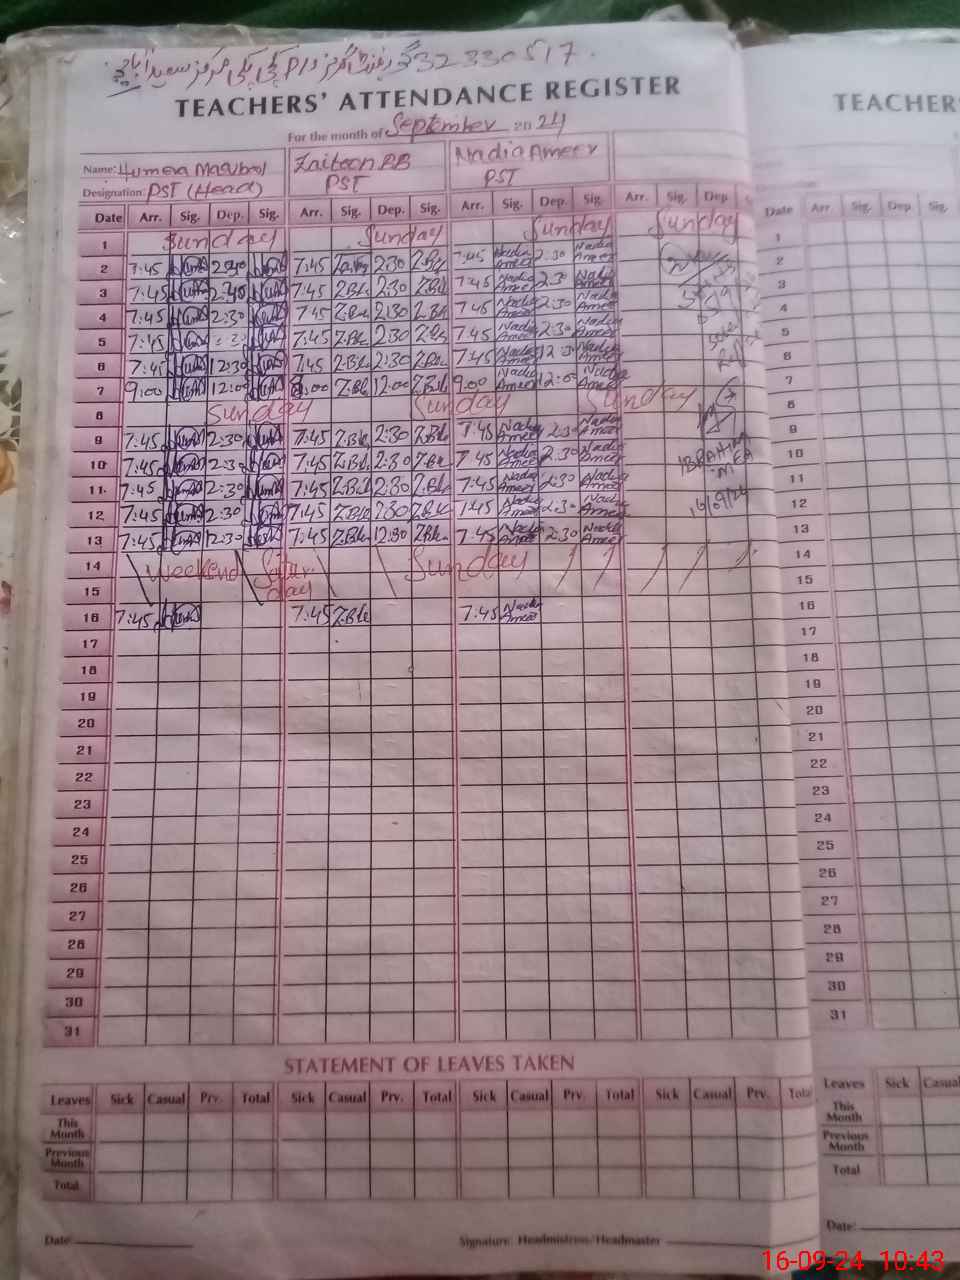 32330517
TEACHERS' ATTENDANCE REGISTER
TEACHERS'
For the month of September 2024
Name: Humera Maqbool Zaitoon BB Nadia Ameer
Designation: PST (Head) PST PST
Date Arr. Sig. Dep. Sig. Arr. Sig. Dep. Sig. Arr. Sig. Dep. Sig. Arr. Sig. Dep. Date Arr. Sig. Dep. Sig.
1 Sunday Sunday Sunday Sunday 1
2 7:45 2:30 7:45 2:30 7:45 Nadia Ameer 2:30 Nadia Ameer 2
3 7:45 2:30 7:45 Z.Bb 2:30 Z.Bb 7:45 Nadia Ameer 2:30 Nadia Ameer 3
4 7:45 2:30 7:45 Z.Bb 2:30 Z.Bb 7:45 Nadia Ameer 2:30 Nadia Ameer 4
5 7:45 7:45 Z.Bb 2:30 Z.Bb 7:45 Nadia Ameer 2:30 Nadia Ameer 5
6 7:45 12:30 7:45 Z.Bb 2:30 Z.Bb 7:45 Nadia Ameer 12:30 Nadia Ameer 6
7 9:00 12:00 9:00 Z.Bb 12:00 Z.Bb 9:00 Nadia Ameer 12:00 Nadia Ameer 7
8 Sunday Sunday Sunday 8
9 7:45 2:30 7:45 Z.Bb 2:30 Z.Bb 7:45 Nadia Ameer 2:30 Nadia Ameer 9
10 7:45 2:30 7:45 Z.Bb 2:30 Z.Bb 7:45 Nadia Ameer 2:30 Nadia Ameer IBRAHIM 10
11 7:45 2:30 7:45 Z.Bb 2:30 Z.Bb 7:45 Nadia Ameer 2:30 Nadia Ameer MEA 11
12 7:45 2:30 7:45 Z.Bb 2:30 Z.Bb 7:45 Nadia Ameer 2:30 Nadia Ameer 16/9/24 12
13 7:45 12:30 7:45 Z.Bb 12:30 Z.Bb 7:45 Nadia Ameer 2:30 Nadia Ameer 13
14 Weekend Satur Sunday 14
15 day 15
16 7:45 7:45 Z.Bb 7:45 Nadia Ameer 16
17 17
18 18
19 19
20 20
21 21
22 22
23 23
24 24
25 25
26 26
27 27
28 28
29 29
30 30
31 31
STATEMENT OF LEAVES TAKEN
Leaves Sick Casual Prv. Total Sick Casual Prv. Total Sick Casual Prv. Total Sick Casual Prv. Total Leaves Sick Casual
This Month This Month
Previous Month Previous Month
Total Total
Date: Signature: Headmistress/Headmaster Date:
16-09-24 10:43